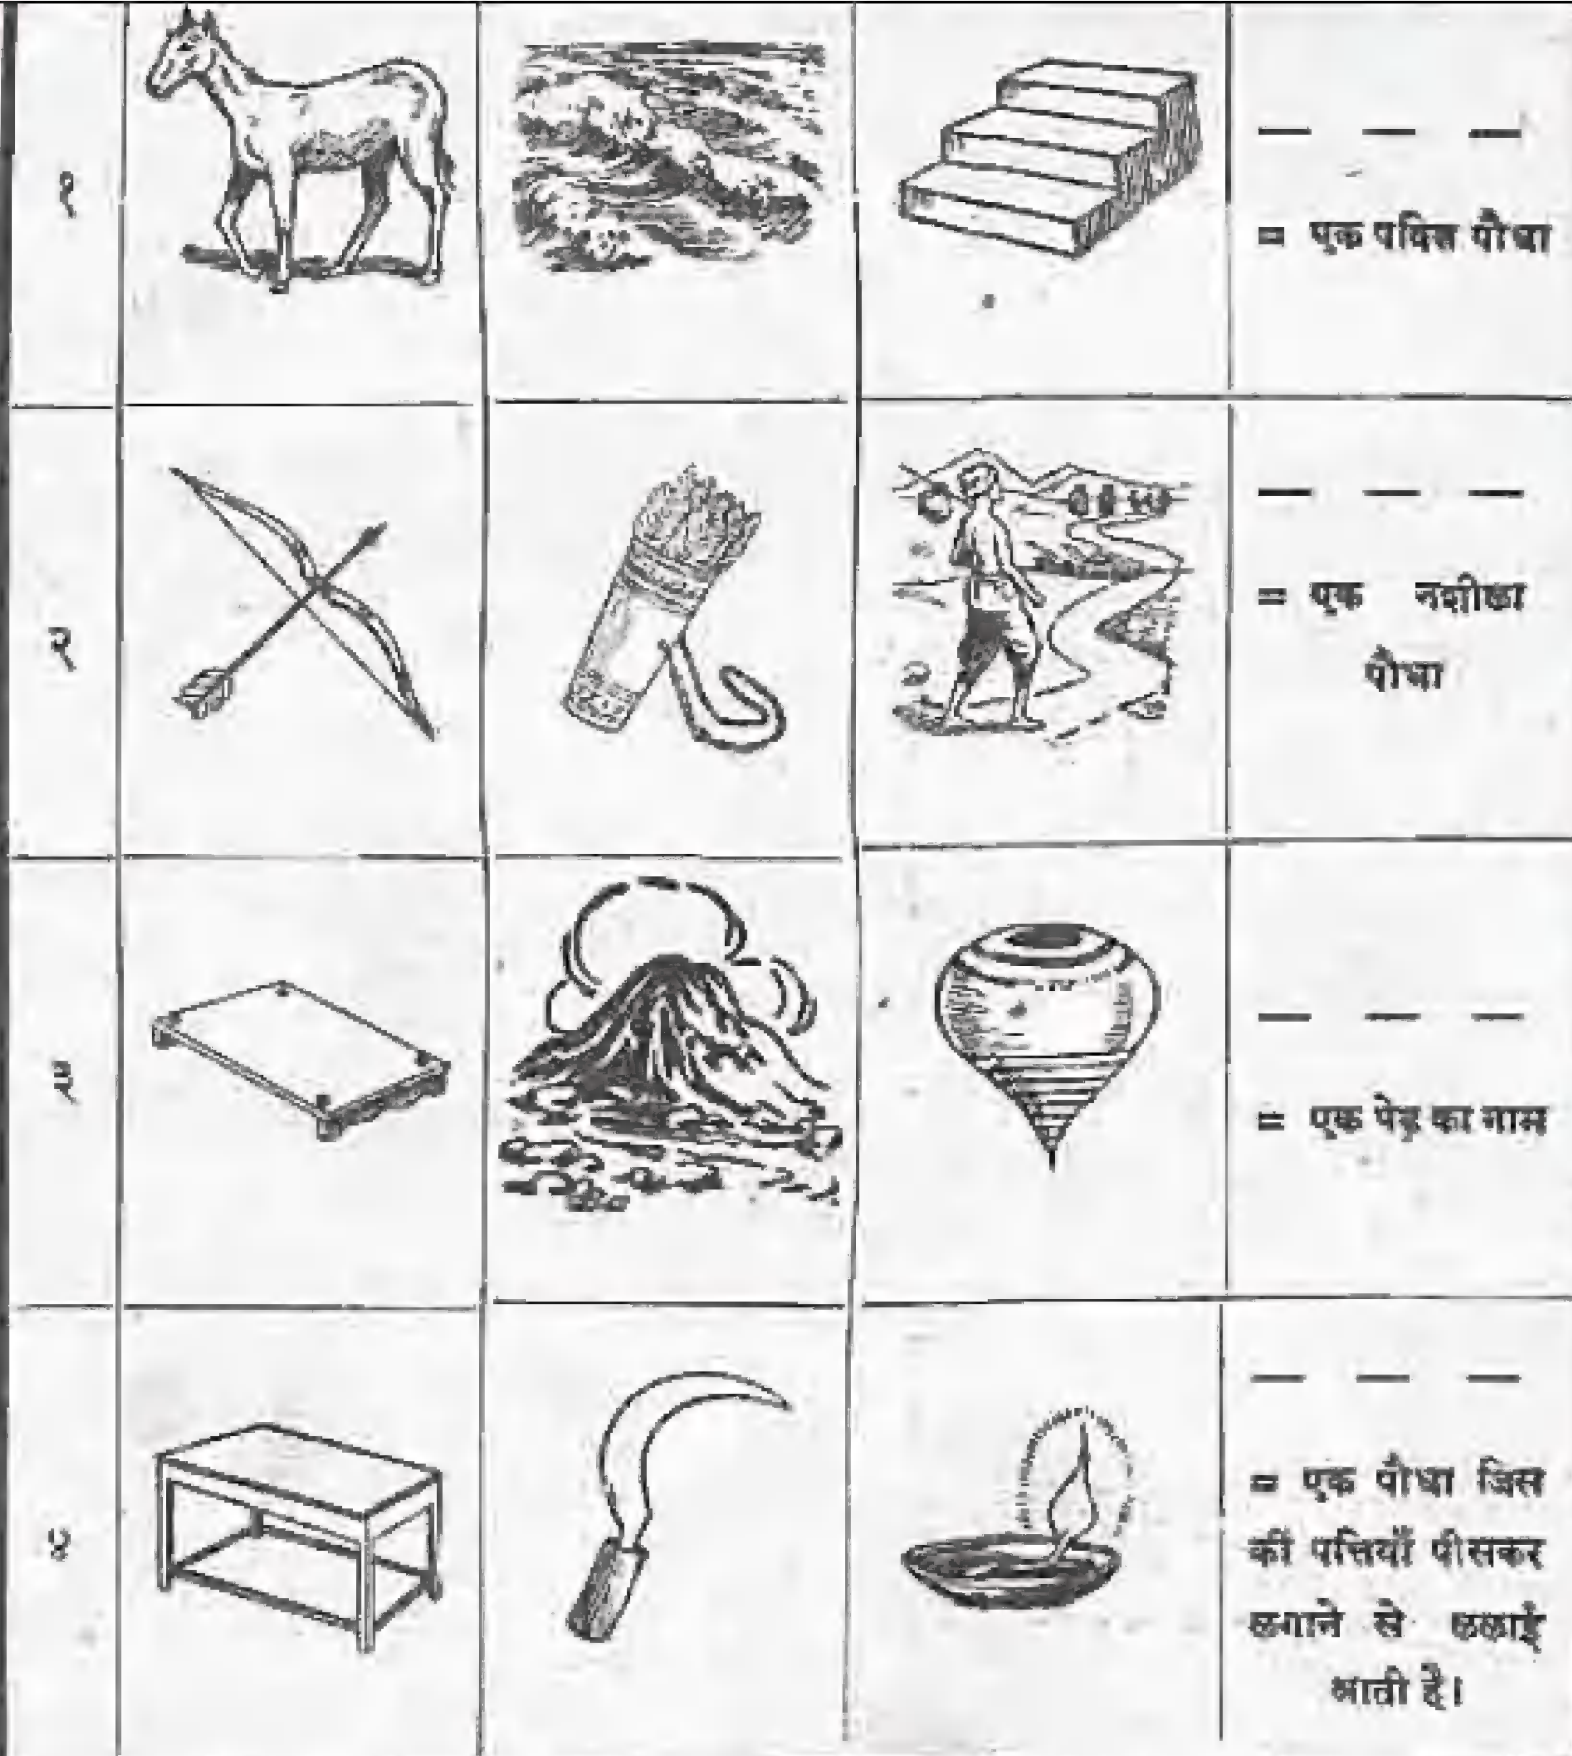 १
= एक पवित्र पौधा
२
= एक नशीला
पौधा
३
= एक पेड़ का नाम
४
= एक पौधा जिस
की पत्तियाँ पीसकर
लगाने से ललाई
आती है।